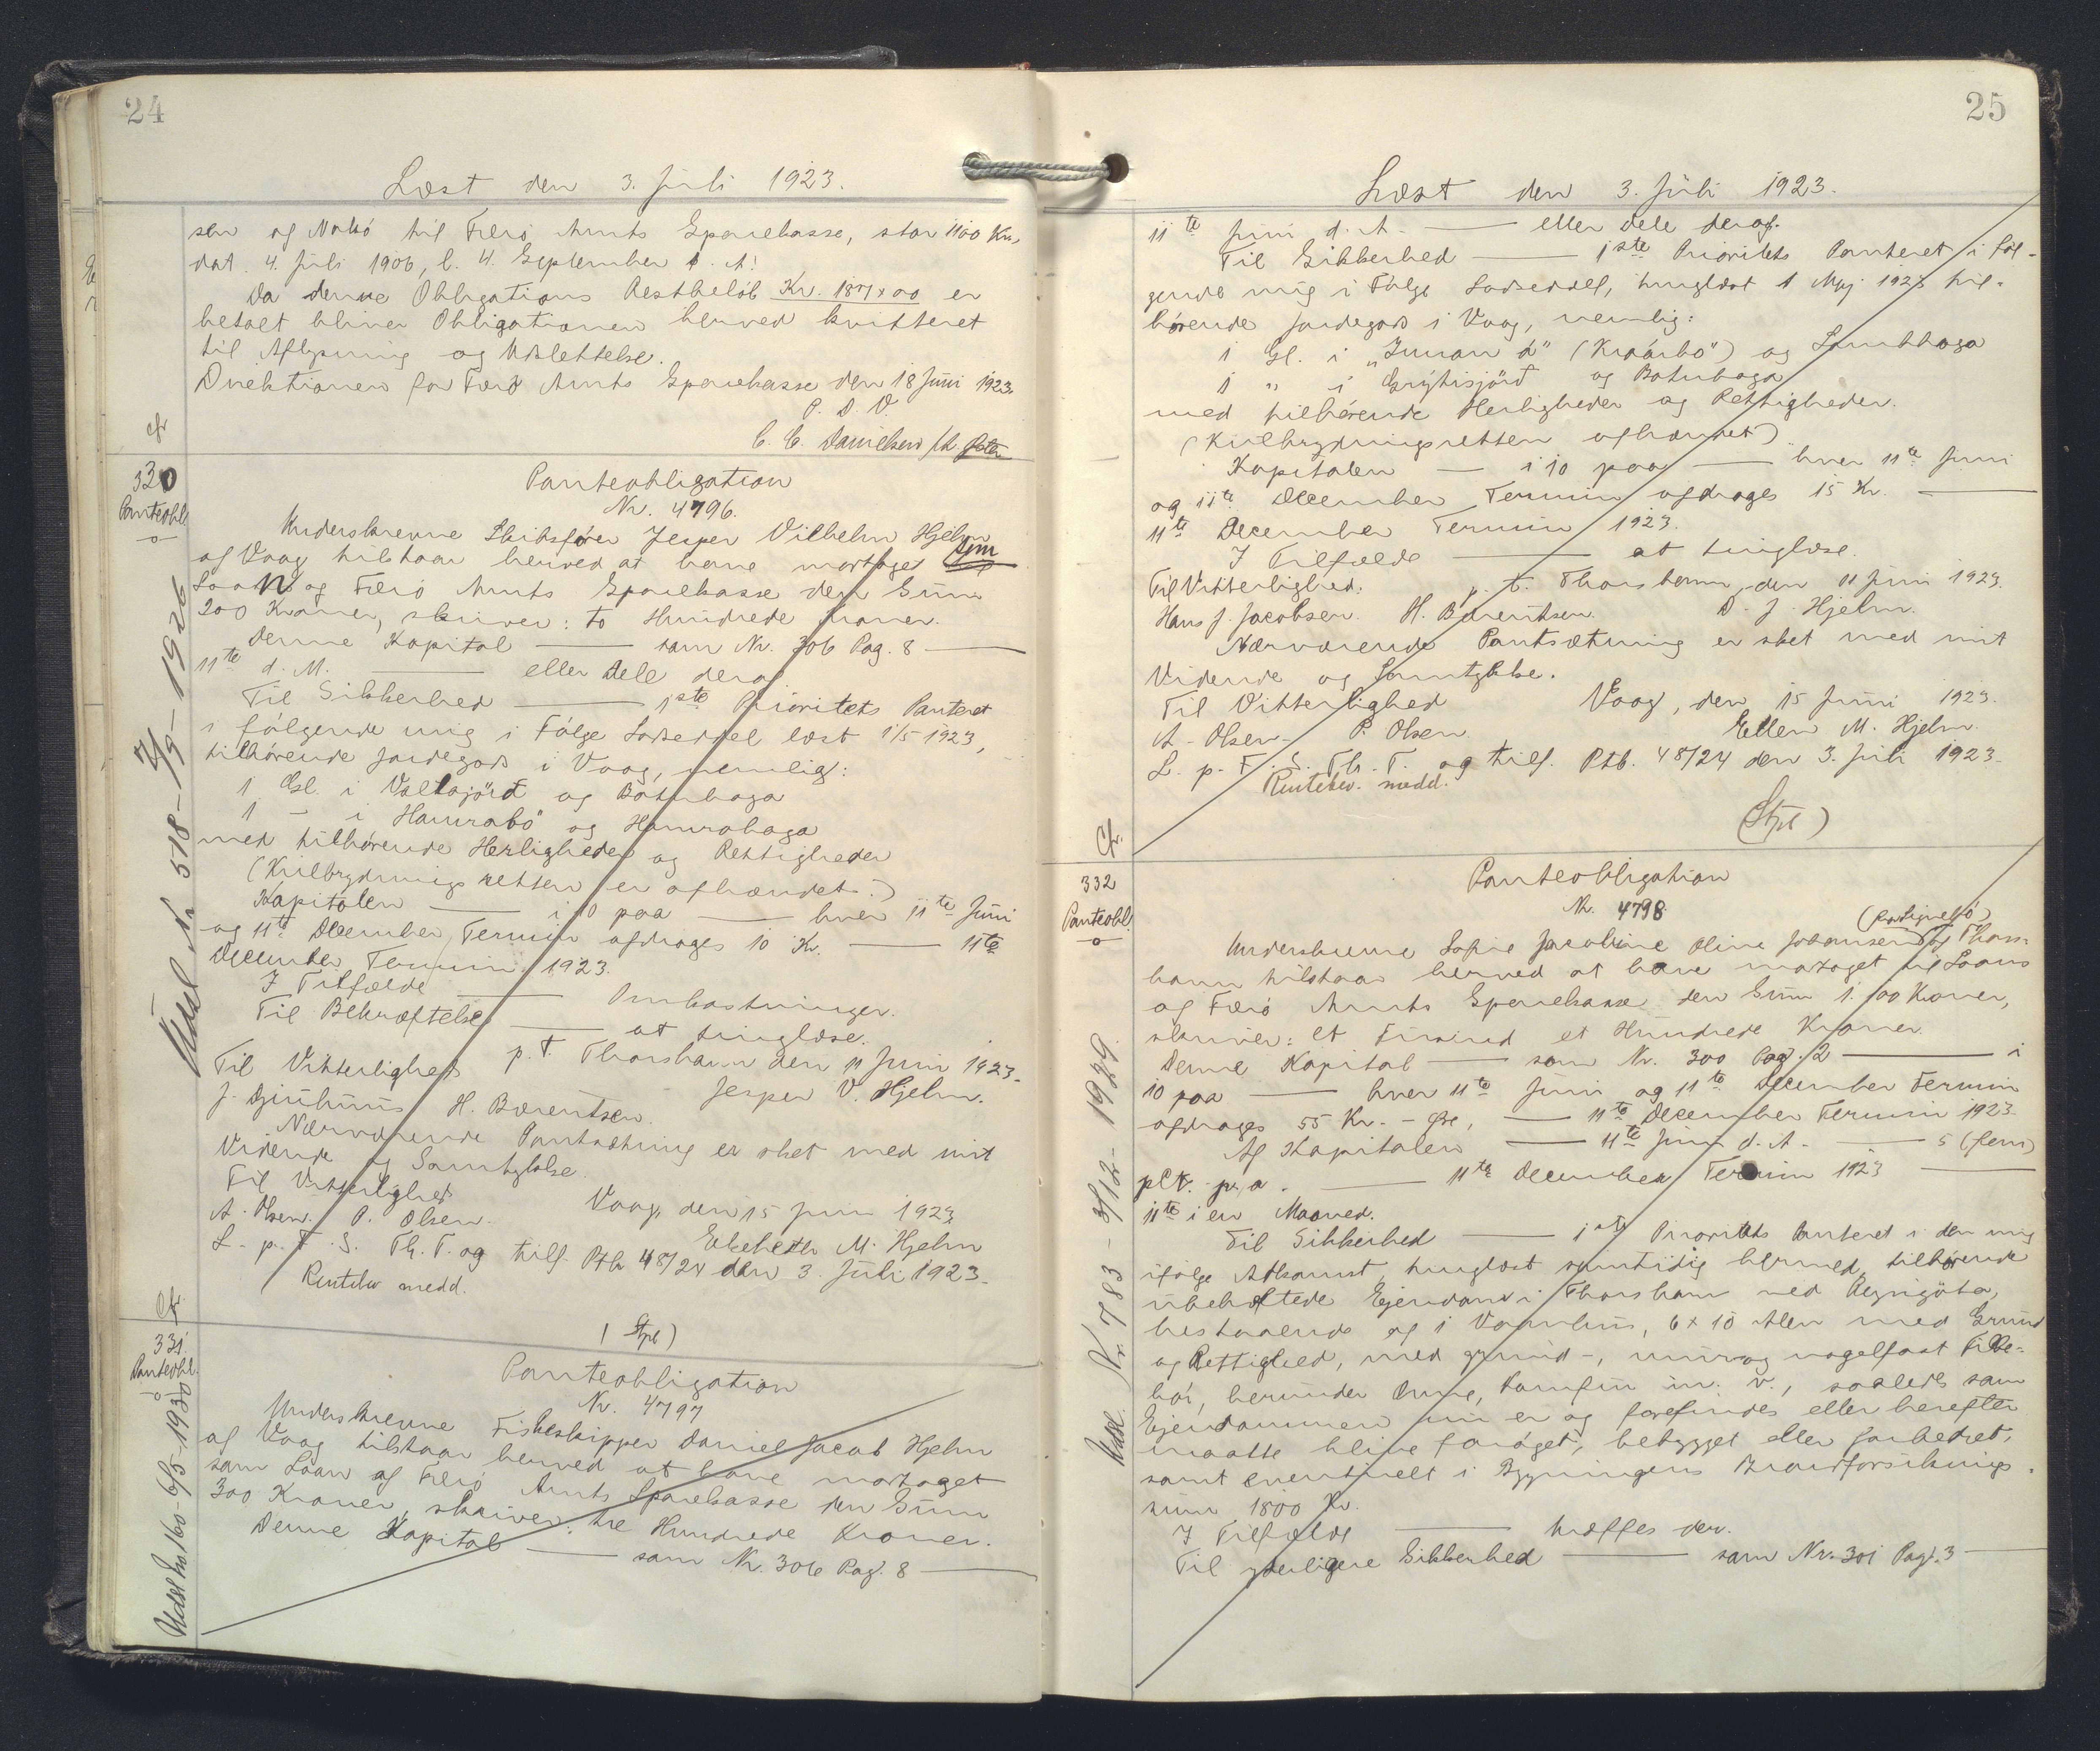 24
Læst den 3. Juli 1923.
sen og Nolsö til Færö Amts Sparekasse, stor 1100 Kr.
dat. 4. Juli 1906, l. 4. September s. A!
Da denne Obligations Restbeløb Kr. 187 x 00 er
betalt bliver Obligationen herved kvitteret
til Aflysning og Udslettelse.
Direktionen for Færö Amts Sparekasse den 18 Juni 1923.
P. D. V.
C. C. Danielsen
cfr
330
Panteobl.
Panteobligation
Nr. 4796.
Underskrevne Skibsfører Jesper Vilhelm Hjelm
af Vaag tilstaar herved at have modtaget som
Laan og Færö Amts Sparekasse den Sum
200 Kroner, skriver: to Hundrede Kroner.
Denne Kapital — som Nr. 306 Pag. 8 —
11te d. M. — eller Dele deraf.
Til Sikkerhed — 1ste Prioritets Panteret
i følgende mig i Følge Lodseddel læst 1/5 1923,
tilhørende Jordegods i Vaag, nemlig:
1 Gl. i Valtajørd og Botnhaga
1 - i Hamrabö og Hamrahaga
med tilhørende Herligheder og Rettigheder
(Kulbrydningsretten er afhændet.)
Kapitalen — i 10 paa — hver 11te Juni
og 11te December Termin afdrages 10 Kr. — 11te
December Termin 1923.
I Tilfælde — Omkostninger.
Til Bekræftelse — at tinglæse.
Til Vitterlighed p. T. Thorshavn den 11 Juni 1923.
J. Djurhuus H. Bærentsen. Jesper V. Hjelm.
Nærværende Pantsætning er sket med mit
Vidende og Samtykke.
Til Vitterlighed Vaag, den 15 Juni 1923.
A. Olsen. P. Olsen. Elsebeth M. Hjelm
L. p. F. S. Th. T. og tilf. Ptb. 48/24 den 3. Juli 1923.
Rentebev. medd.
(Stpl)
Udsl Nr 518 - 7/9 - 1926
cfr.
331.
Panteobl.
Panteobligation
Nr. 4797
Underskrevne Fiskeskipper Daniel Jacob Hjelm
af Vaag tilstaar herved at have modtaget
som Laan af Færö Amts Sparekasse den Sum
300 Kroner, skriver: tre Hundrede Kroner.
Denne Kapital — som Nr. 306 Pag. 8 —
Udsl Nr 160 - 6/5 - 1930
25
Læst den 3. Juli 1923.
11te Juni d. A. — eller dele deraf.
Til Sikkerhed — 1ste Prioritets Panteret i føl-
gende mig i Følge Lodseddel, tinglæst 1 Maj 1923 til-
hørende Jordegods i Vaag, nemlig:
1 Gl. i "Innan á" (Kráarbö") og Lambhaga
1 " i Grýtisjörd og Botnhaga
med tilhørende Herligheder og Rettigheder.
(Kulbrydningsretten afhændet).
Kapitalen — i 10 paa — hver 11te Juni
og 11te December Termin afdrages 15 Kr. —
11te December Termin 1923.
I Tilfælde — at tinglæse.
Til Vitterlighed: p. t. Thorshavn, den 11 Juni 1923.
Hans J. Jacobsen. H. Bærentsen. D. J. Hjelm.
Nærværende Pantsætning er sket med mit
Vidende og Samtykke.
Til Vitterlighed Vaag, den 15 Juni 1923.
A. Olsen P. Olsen. Ellen M. Hjelm.
L. p. F. S. Th. T. og tilf. Ptb. 48/24 den 3. Juli 1923.
Rentebev. medd.
(Stpl)
Cfr.
332
Panteobl.
Panteobligation
Nr. 4798
Underskrevne Sofie Jacobine Oline Joensen af Thors-
havn tilstaar herved at have modtaget til Laans
af Færö Amts Sparekasse den Sum 1.100 Kroner,
skriver: et Tusind et Hundrede Kroner.
Denne Kapital — som Nr. 300 Pag. 2 — i
10 paa — hver 11te Juni og 11te December Termin
afdrages 55 Kr. - Øre, — 11te December Termin 1923.
Af Kapitalen — 11te Juni d. A. — 5 (fem)
pCt. p. a. — 11te December Termin 1923 —
11te i en Maaned.
Til Sikkerhed — 1ste Prioritets Panteret i den mig
ifølge Adkomst, tinglæst samtidig hermed, tilhørende
ubehæftede Ejendom i Thorshavn ved Reynigöta,
bestaaende af 1 Vaanhus, 6 x 10 Alen med Grund
og Rettighed, med grund-, mur og nagelfast Tilbe-
hør, herunder Ovne, Komfur m. v., saaledes som
Ejendommen nu er og forefindes eller herefter
maatte blive forøget, bebygget eller forbedret,
samt eventuelt i Bygningens Brandforsikrings-
sum 1800 Kr.
I Tilfælde — træffes der.
Til yderligere Sikkerhed — som Nr. 301 Pag. 3 —
Udsl. Nr 783 - 3/12 - 1939.